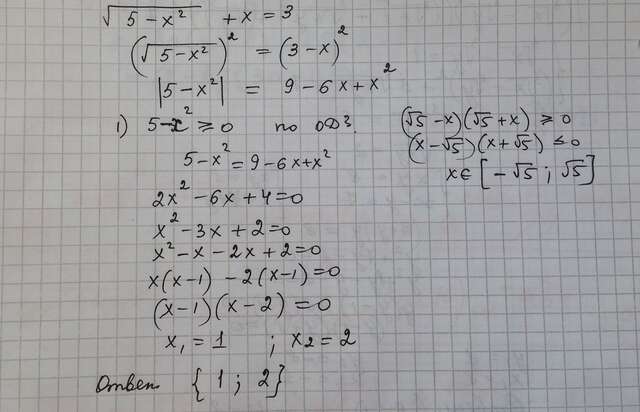 √5-x² + x = 3
(√5-x²)² = (3-x)²
|5-x²| = 9-6x+x²
1) 5-x² ≥ 0 по ОДЗ.
(√5-x)(√5+x) ≥ 0
(x-√5)(x+√5) ≤ 0
x∈[-√5; √5]
5-x² = 9-6x+x²
2x²-6x+4=0
x²-3x+2=0
x²-x-2x+2=0
x(x-1)-2(x-1)=0
(x-1)(x-2)=0
x₁=1 ; x₂=2
Ответ {1; 2}